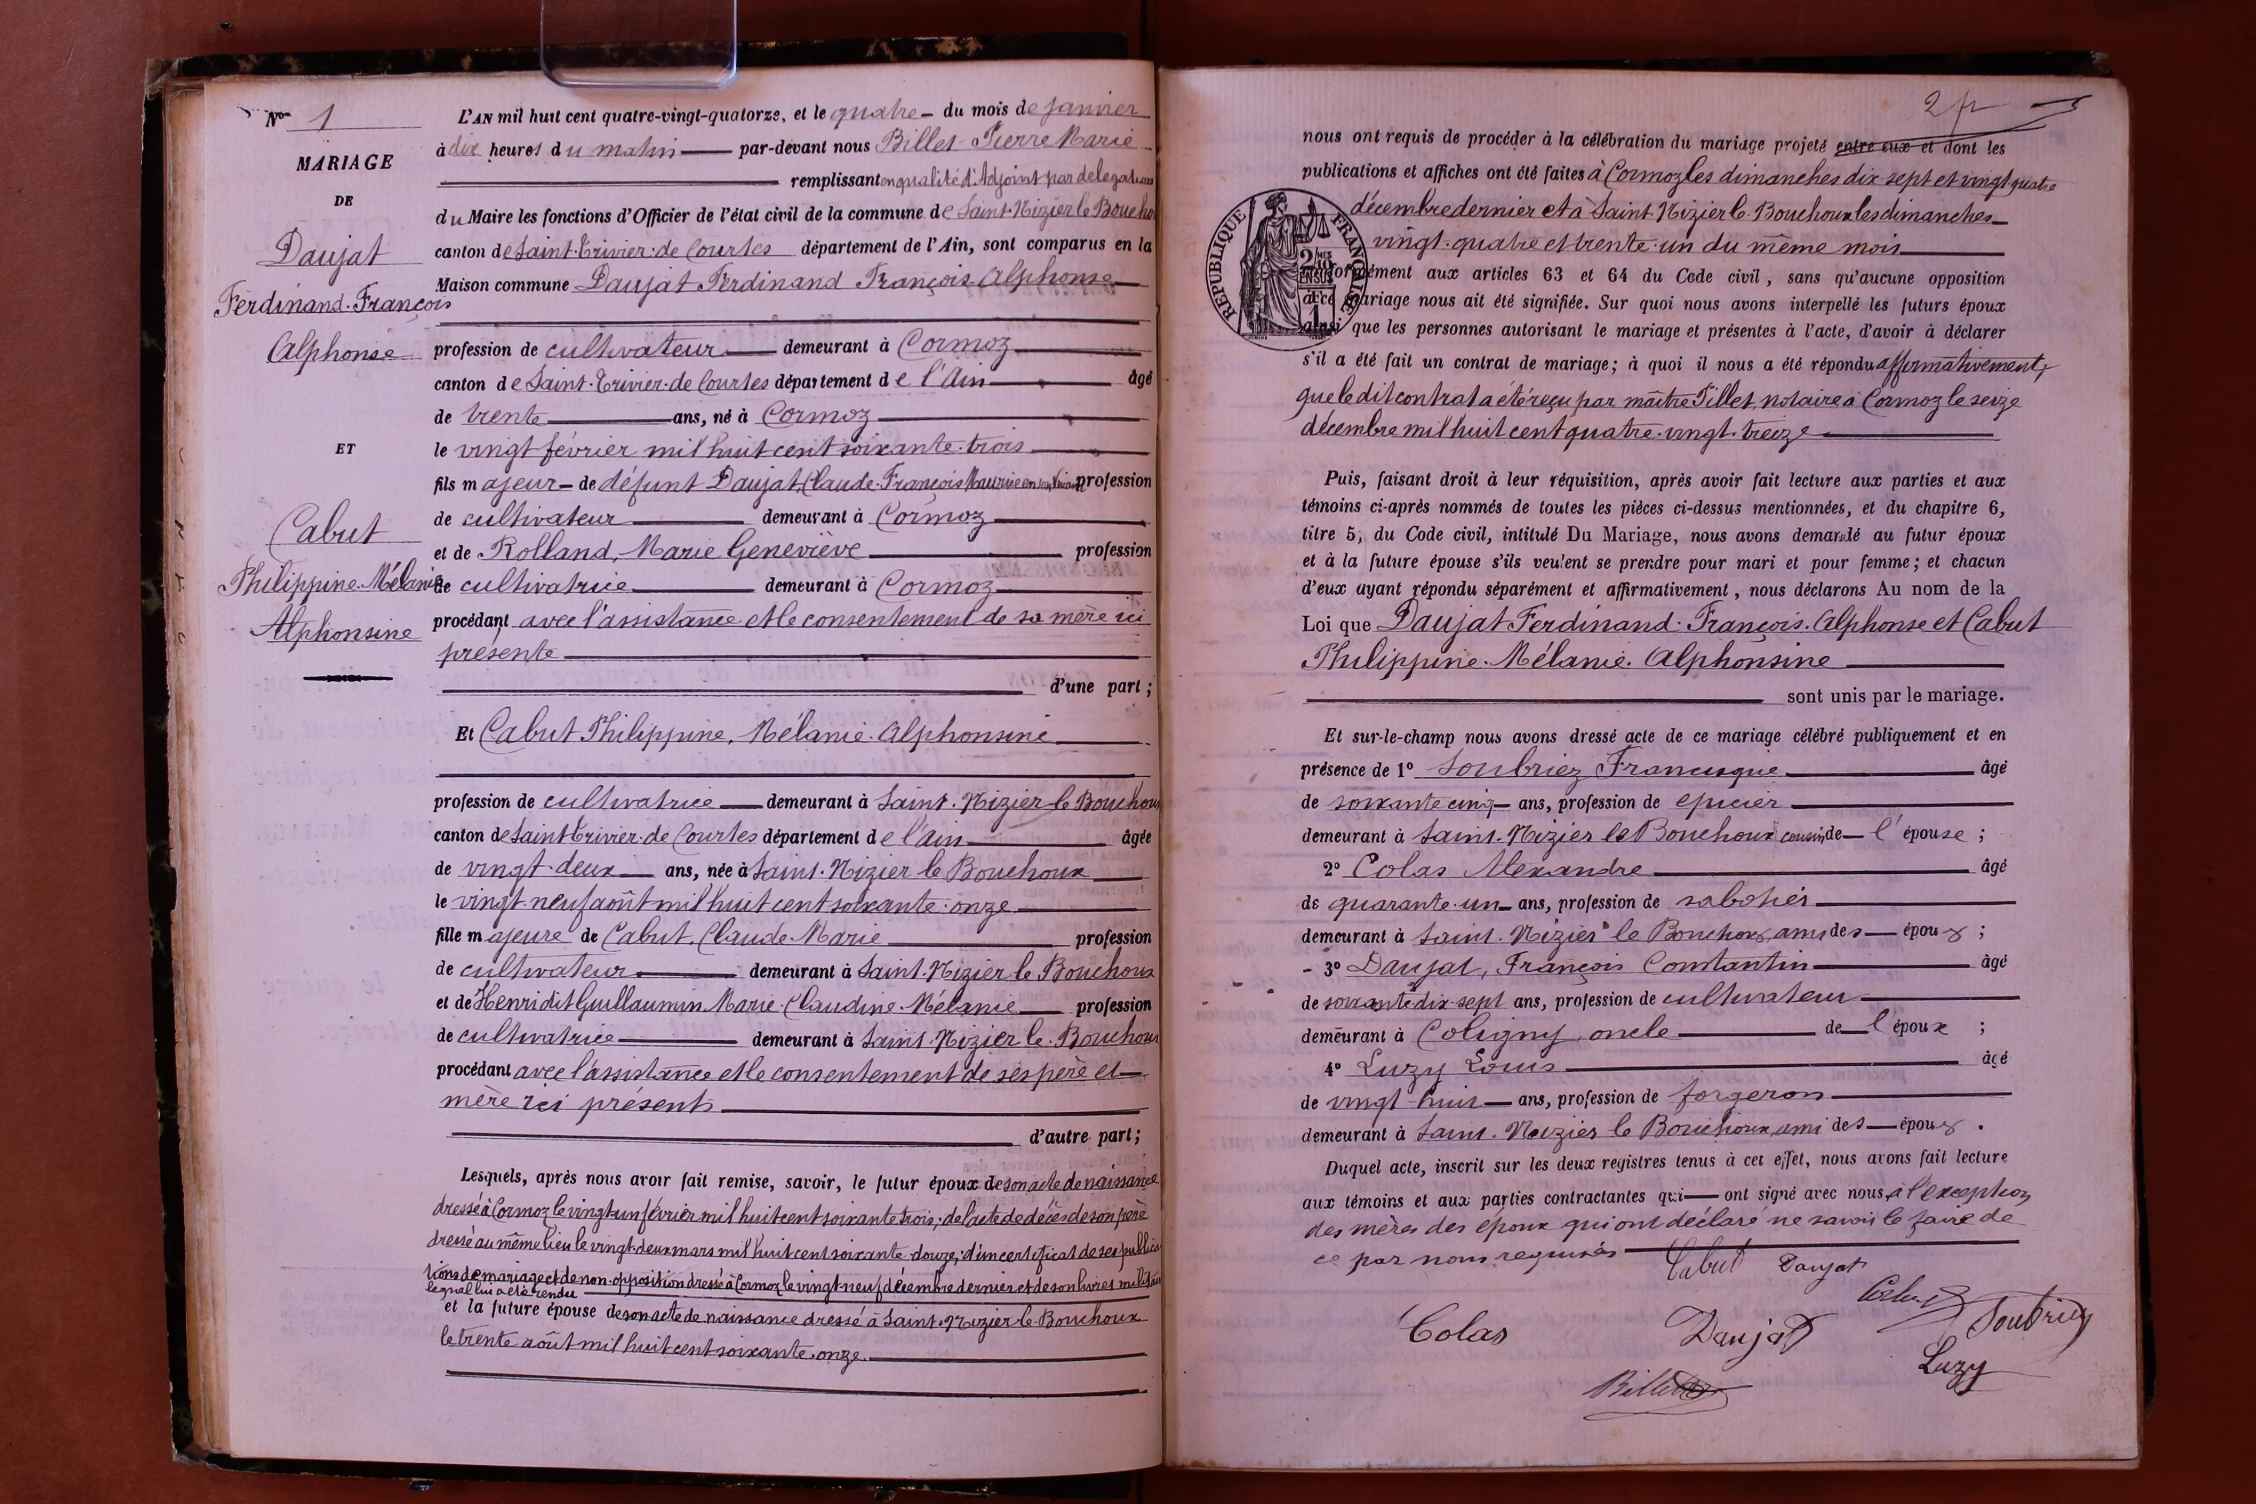 Nos 1
MARIAGE
DE
Daujat
Ferdinand. François
Alphonse
ET
Cabut
Philippine. Mélanie
Alphonsine
L'AN mil huit cent quatre-vingt-quatorze, et le quatre du mois de janvier
à dix heures du matin par-devant nous Billet Pierre Marie
remplissant en qualité d'Adjoint par délégation
du Maire les fonctions d'Officier de l'état civil de la commune de Saint-Nizier le Bouchoux
canton de Saint-Trivier-de Courtes département de l'Ain, sont comparus en la
Maison commune Daujat Ferdinand François Alphonse
profession de cultivateur demeurant à Cormoz
canton de Saint-Trivier-de Courtes département de l'Ain âgé
de trente ans, né à Cormoz
le vingt février mil huit cent soixante-trois
fils majeur de défunt Daujat, Claude-François Maurice en son vivant profession
de cultivateur demeurant à Cormoz
et de Rolland, Marie Geneviève profession
de cultivatrice demeurant à Cormoz
procédant avec l'assistance et le consentement de sa mère ici
présente
d'une part;
Et Cabut Philippine, Mélanie. Alphonsine
profession de cultivatrice demeurant à Saint-Nizier le Bouchoux
canton de Saint Trivier-de Courtes département de l'Ain âgée
de vingt-deux ans, née à Saint-Nizier le Bouchoux
le vingt-neuf août mil huit cent soixante-onze
fille majeure de Cabut, Claude-Marie profession
de cultivateur demeurant à Saint-Nizier le Bouchoux
et de Henri dit Guillaumin Marie-Claudine-Mélanie profession
de cultivatrice demeurant à Saint-Nizier le Bouchoux
procédant avec l'assistance et le consentement de ses père et
mère ici présents
d'autre part;
Lesquels, après nous avoir fait remise, savoir, le futur époux de son acte de naissance
dressé à Cormoz le vingt-un février mil huit cent soixante trois; de l'acte de décès de son père
dressé au même lieu le vingt-deux mars mil huit cent soixante-douze; d'un certificat de ses publica
tions de mariage et de non-opposition dressé à Cormoz le vingt-neuf décembre dernier et de son livret militaire
lequel lui a été rendu
et la future épouse de son acte de naissance dressé à Saint-Nizier-le-Bouchoux
le trente août mil huit cent soixante-onze.
nous ont requis de procéder à la célébration du mariage projeté entre eux et dont les
publications et affiches ont été faites à Cormoz les dimanches dix sept et vingt quatre
décembre dernier et à Saint-Nizier le Bouchoux les dimanches
vingt-quatre et trente-un du même mois
REPUBLIQUE FRANÇAISE
conformément aux articles 63 et 64 du Code civil, sans qu'aucune opposition
à ce mariage nous ait été signifiée. Sur quoi nous avons interpellé les futurs époux
ainsi que les personnes autorisant le mariage et présentes à l'acte, d'avoir à déclarer
s'il a été fait un contrat de mariage; à quoi il nous a été répondu affirmativement,
que le dit contrat a été reçu par maître Tillet, notaire à Cormoz le seize
décembre mil huit cent quatre-vingt-treize
Puis, faisant droit à leur réquisition, après avoir fait lecture aux parties et aux
témoins ci-après nommés de toutes les pièces ci-dessus mentionnées, et du chapitre 6,
titre 5, du Code civil, intitulé Du Mariage, nous avons demandé au futur époux
et à la future épouse s'ils veulent se prendre pour mari et pour femme; et chacun
d'eux ayant répondu séparément et affirmativement, nous déclarons Au nom de la
Loi que Daujat Ferdinand-François. Alphonse et Cabut
Philippine-Mélanie. Alphonsine
sont unis par le mariage.
Et sur-le-champ nous avons dressé acte de ce mariage célébré publiquement et en
présence de 1° Soubriez Francisque âgé
de soixante cinq ans, profession de épicier
demeurant à Saint-Nizier le Bouchoux cousin de l'épouse;
2° Colas Alexandre âgé
de quarante-un ans, profession de sabotier
demeurant à Saint-Nizier le Bouchoux, ami des époux;
3° Daujat, François Constantin âgé
de soixante dix-sept ans, profession de cultivateur
demeurant à Coligny, oncle de l'époux;
4° Luzy Louis âgé
de vingt-huit ans, profession de forgeron
demeurant à Saint-Nizier le Bouchoux, ami des époux.
Duquel acte, inscrit sur les deux registres tenus à cet effet, nous avons fait lecture
aux témoins et aux parties contractantes qui ont signé avec nous, à l'exception
des mères des époux qui ont déclaré ne savoir le faire de
ce par nous requises
Cabut Daujat
Soubriez
Colas Daujat
Luzy
Billet